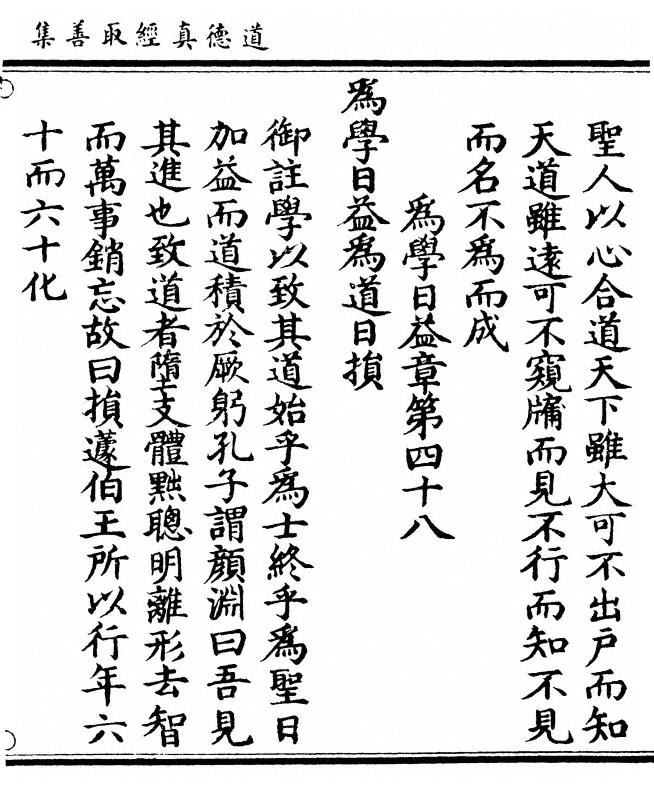 道德真經取善集
聖人以心合道天下雖大可不出戶而知
天道雖遠可不窺牖而見不行而知不見
而名不為而成
為學日益章第四十八
為學日益為道日損
御註學以致其道始乎為士終乎為聖日
加益而道積於厥躬孔子謂顏淵曰吾見
其進也致道者墮支體黜聰明離形去智
而萬事銷忘故曰損蘧伯玉所以行年六
十而六十化